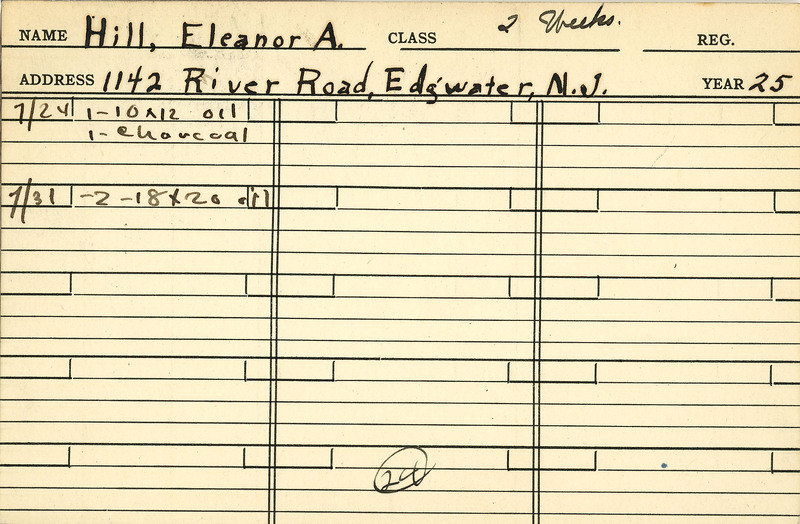 NAME Hill, Eleanor A. CLASS 2 Weeks. REG.
ADDRESS 1142 River Road, Edgwater, N.J. YEAR 25
7/24 1-10x12 oil
1- Charcoal
7/31 -2 -18x20 oil
24